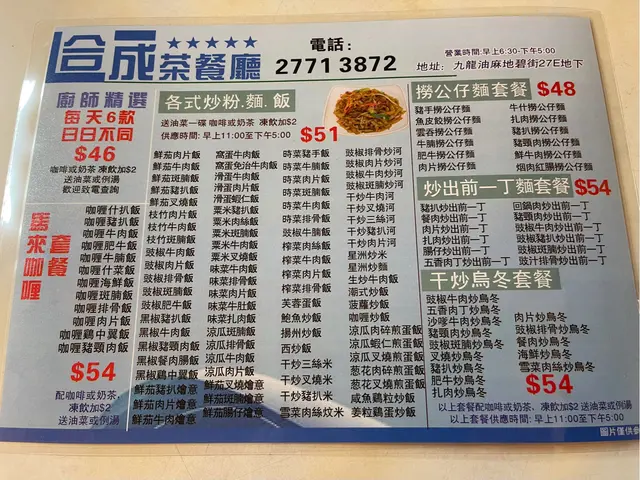 合成茶餐廳
電話:
2771 3872
營業時間:早上6:30-下午5:00
地址: 九龍油麻地碧街27E地下
廚師精選
每天6款
日日不同
$46
咖啡或奶茶,凍飲加$2
送油菜或例湯
歡迎致電查詢
馬來咖喱
套餐
咖喱什扒飯
咖喱豬扒飯
咖喱牛肉飯
咖喱肥牛飯
咖喱牛腩飯
咖喱什菜飯
咖喱海鮮飯
咖喱排骨飯
咖喱肉片飯
咖喱鷄中翼飯
咖喱豬頸肉飯
$54
配咖啡或奶茶,
凍飲加$2
送油菜或例湯
各式炒粉.麵.飯
送油菜一碟 咖啡或奶茶 凍飲加$2
供應時間: 早上11:00至下午5:00
$51
鮮茄肉片飯
鮮茄牛肉飯
鮮茄斑腩飯
鮮茄豬扒飯
鮮茄叉燒飯
枝竹肉片飯
枝竹牛肉飯
枝竹斑腩飯
豉椒牛肉飯
豉椒肉片飯
豉椒斑腩飯
豉椒排骨飯
豉椒肥牛飯
黑椒豬扒飯
黑椒牛肉飯
黑椒餐肉腸飯
黑椒鷄中翼飯
鮮茄豬扒燴意
鮮茄肉片燴意
鮮茄牛肉燴意
窩蛋牛肉飯
窩蛋免治牛肉飯
滑蛋牛肉飯
滑蛋肉片飯
滑蛋蝦仁飯
粟米豬扒飯
粟米肉片飯
粟米斑腩飯
粟米牛肉飯
味菜牛肉飯
味菜肉片飯
味菜排骨飯
味菜牛肚飯
涼瓜排骨飯
涼瓜斑腩飯
涼瓜牛肉飯
涼瓜肉片飯
鮮茄叉燒燴意
鮮茄斑腩燴意
鮮茄腸仔燴意
時菜豬手飯
時菜牛腩飯
時菜肉片飯
時菜斑腩飯
時菜牛肉飯
時菜排骨飯
榨菜肉絲飯
榨菜牛肉飯
榨菜肉片飯
榨菜排骨飯
芙蓉蛋飯
鮑魚炒飯
揚州炒飯
西炒飯
干炒三絲米
干炒叉燒米
干炒豬扒米
雪菜肉絲炆米
豉椒排骨炒河
豉椒肉片炒河
豉椒牛肉炒河
豉椒斑腩炒河
干炒牛肉河
干炒叉燒河
干炒三絲河
干炒豬扒河
干炒肉片河
星洲炒米
星洲炒麵
生炒牛肉飯
潮式炒飯
菠蘿炒飯
咖喱炒飯
涼瓜肉碎煎蛋飯
涼瓜蝦仁煎蛋飯
涼瓜叉燒煎蛋飯
葱花肉碎煎蛋飯
葱花叉燒煎蛋飯
咸魚鷄粒炒飯
姜粒鷄蛋炒飯
撈公仔麵套餐 $48
豬手撈公仔麵
魚皮餃撈公仔麵
雲吞撈公仔麵
牛腩撈公仔麵
肥牛撈公仔麵
肉片撈公仔麵
牛什撈公仔麵
牛肚撈公仔麵
豬扒撈公仔麵
豬頸肉撈公仔麵
炸醬撈公仔麵
炒出前一丁麵套餐 $54
豬扒炒出前一丁
餐肉炒出前一丁
肉片炒出前一丁
扎肉炒出前一丁
腸仔炒出前一丁
五香肉丁炒出前一丁
回鍋肉炒出前一丁
豬頸肉炒出前一丁
豉椒牛肉炒出前一丁
豉椒豬扒炒出前一丁
豉椒斑腩炒出前一丁
豉汁排骨炒出前一丁
干炒烏冬套餐
豉椒牛肉炒烏冬
五香肉丁炒烏冬
沙嗲牛肉炒烏冬
豬頸肉炒烏冬
叉燒炒烏冬
豬扒炒烏冬
肥牛炒烏冬
扎肉炒烏冬
肉片炒烏冬
豉椒排骨炒烏冬
餐肉炒烏冬
海鮮炒烏冬
雪菜肉絲炒烏冬
$54
以上套餐配咖啡或奶茶、凍飲加$2 送油菜或例湯
以上套餐供應時間: 早上11:00至下午5:00
圖片僅供參